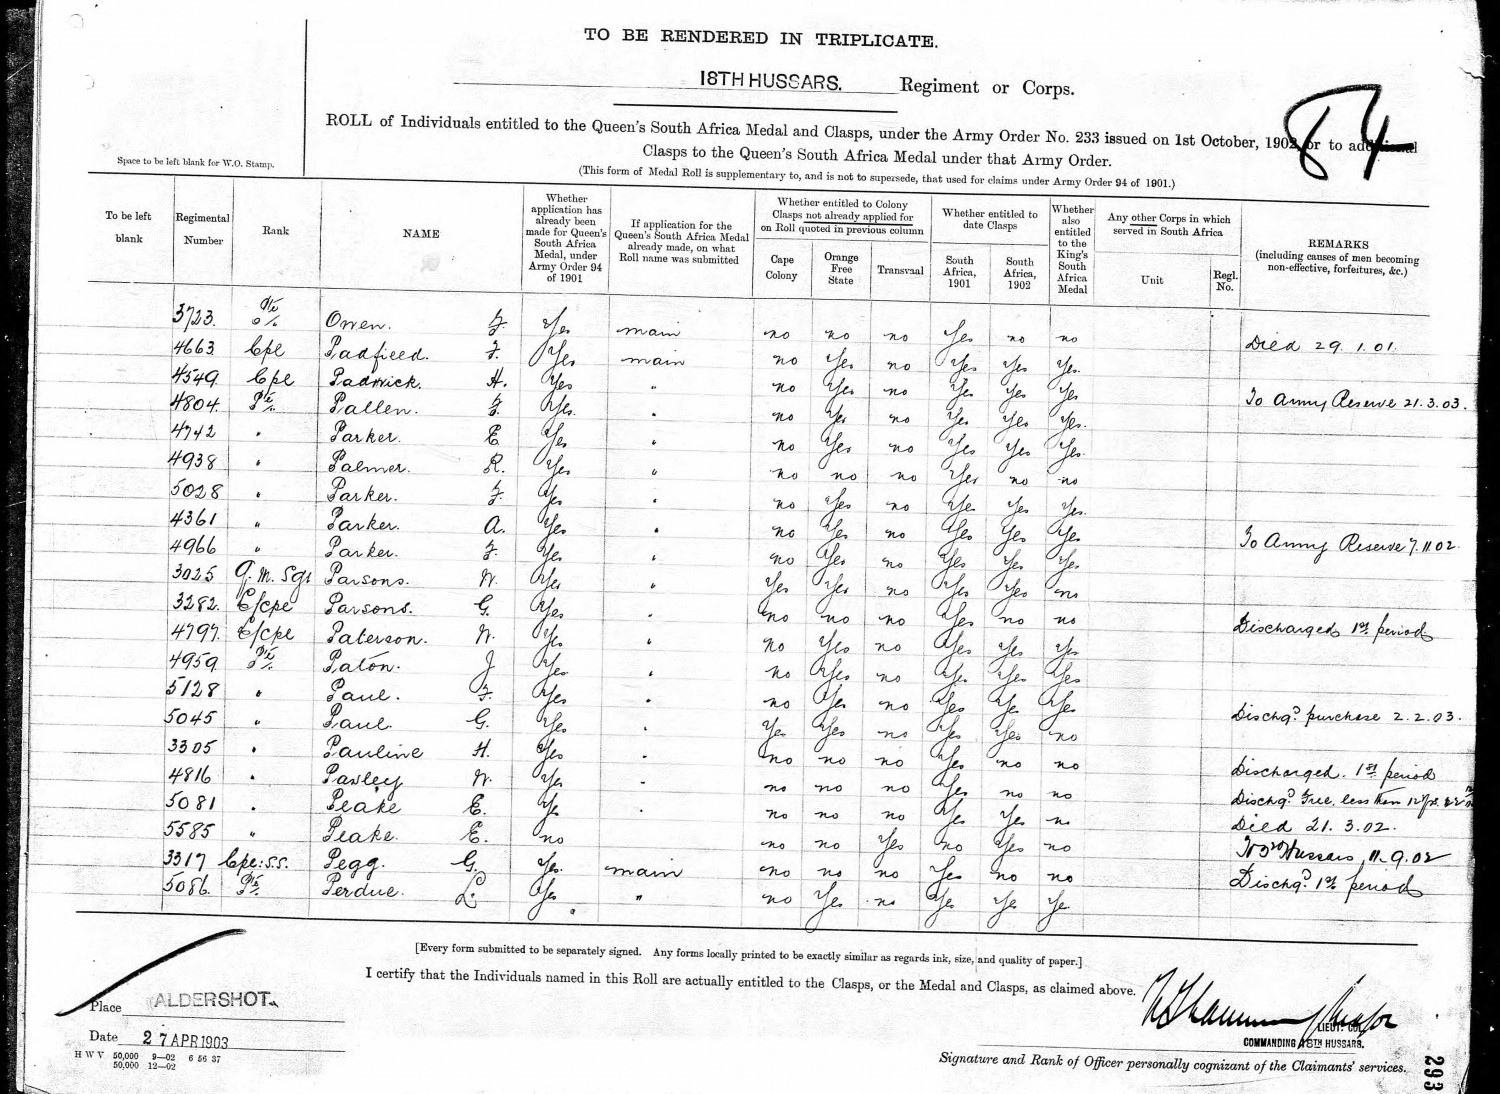 TO BE RENDERED IN TRIPLICATE.
18TH HUSSARS. Regiment or Corps.
84
ROLL of Individuals entitled to the Queen's South Africa Medal and Clasps, under the Army Order No. 233 issued on 1st October, 1902, or to additional
Clasps to the Queen's South Africa Medal under that Army Order.
(This form of Medal Roll is supplementary to, and is not to supersede, that used for claims under Army Order 94 of 1901.)
Space to be left blank for W.O. Stamp.
To be left blank
Regimental Number
Rank
NAME
Whether application has already been made for Queen's South Africa Medal, under Army Order 94 of 1901
If application for the Queen's South Africa Medal already made, on what Roll name was submitted
Whether entitled to Colony Clasps not already applied for on Roll quoted in previous column
Cape Colony
Orange Free State
Transvaal
Whether entitled to date Clasps
South Africa, 1901
South Africa, 1902
Whether also entitled to the King's South Africa Medal
Any other Corps in which served in South Africa
Unit
Regl. No.
REMARKS
(including causes of men becoming non-effective, forfeitures, &c.)
3723 Pte Owen. F. Yes main no no no Yes no no Died 29.1.01.
4663 Cpl Padfield. F. Yes main no Yes no Yes Yes Yes.
4549 Cpl Padwick. H. Yes " no Yes no Yes Yes Yes To Army Reserve 21.3.03.
4804 Pte Pallen. F. Yes. " no Yes no Yes Yes Yes.
4742 " Parker. E Yes " no Yes no Yes Yes Yes
4938 " Palmer. R. Yes " no no no Yes no no
5028 " Parker. F. Yes " no Yes no Yes Yes Yes.
4361 " Parker. A. Yes " no Yes no Yes Yes Yes To Army Reserve 7.11.02.
4966 " Parker. F. Yes " no Yes no Yes Yes Yes
3025 Q.M. Sgt Parsons. W. Yes " Yes Yes no Yes Yes no
3282 L/Cpl Parsons. G. Yes " no no no Yes no no Discharged 1st period
4797 L/Cpl Paterson. W. Yes " no Yes no Yes Yes Yes
4959 Pte Paton. J Yes " no Yes no Yes Yes Yes
5128 " Paul. F. Yes " no Yes no Yes Yes Yes Dischgd purchase 2.2.03.
5045 " Paul G. Yes " Yes Yes no Yes Yes no
3305 " Pauline H. Yes " no no no Yes no no Discharged. 1st period
4816 " Paxley W. Yes " no no no Yes no no Dischgd Free less than 12 yrs
5081 " Peake E. Yes " no no no Yes Yes no Died 21.3.02.
5585 " Peake. E. no no no Yes no Yes no To 3rd Hussars 11.9.02
3317 Cpl: S.S. Pegg. G. Yes. main no no no Yes no no Dischgd 1st period
5086 Pte Perdue. L. Yes " no Yes no Yes Yes Ye
[Every form submitted to be separately signed. Any forms locally printed to be exactly similar as regards ink, size, and quality of paper.]
I certify that the Individuals named in this Roll are actually entitled to the Clasps, or the Medal and Clasps, as claimed above.
Place ALDERSHOT.
Date 27 APR 1903
H W V 50,000 9—02 6 56 37
50,000 12—02
Major
LIEUT. COL.
COMMANDING 18TH HUSSARS.
Signature and Rank of Officer personally cognizant of the Claimants' services.
293